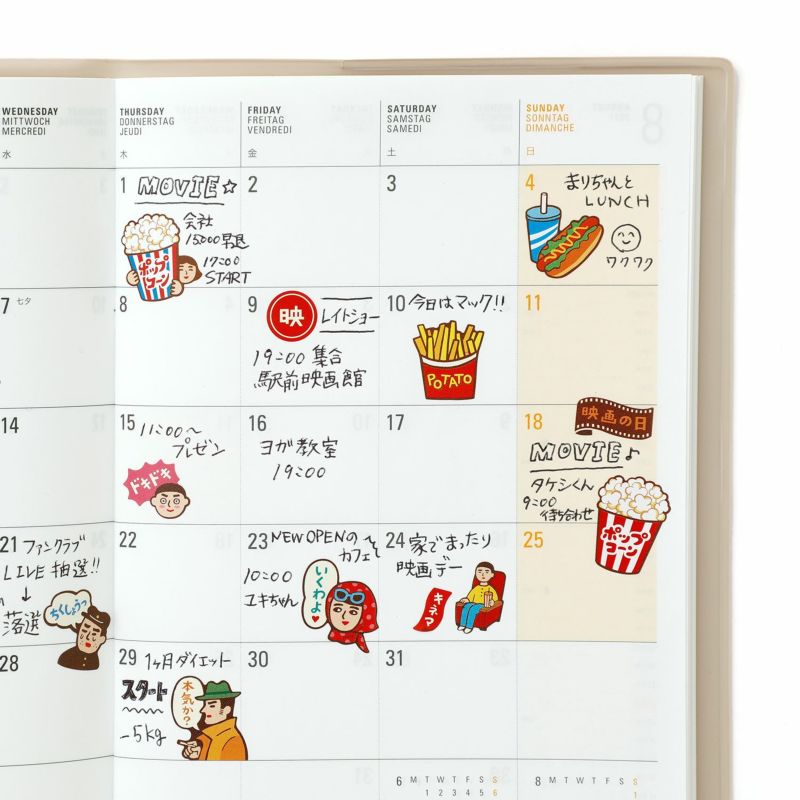 WEDNESDAY
MITTWOCH
MERCREDI
水
THURSDAY
DONNERSTAG
JEUDI
木
FRIDAY
FREITAG
VENDREDI
金
SATURDAY
SAMSTAG
SAMEDI
土
SUNDAY
SONNTAG
DIMANCHE
日
1 MOVIE☆
会社
15:00早退
17:00
START
ポップ
コーン
2
3
4 まりちゃんと
LUNCH
ワクワク
7 七夕
8
9 映 レイトショー
19:00 集合
駅前映画館
10 今日はマック!!
POTATO
11
14
15 11:00〜
プレゼン
ドキドキ
16
ヨガ教室
19:00
17
18 映画の日
MOVIE♪
タケシくん
9:00
待ち合わせ
ポップ
コーン
21 ファンクラブ
LIVE抽選!!
↓
落選
ちくしょうっ
22
23 NEW OPENの
カフェへ
10:00
ユキちゃん
いくわよ♥
24 家でまったり
映画デー
キネマ
25
28
29 1ヶ月ダイエット
スタート
-5kg
本気か?
30
31
6 M T W T F S S
1 2 3 4 5 6
8 M T W T F S S
1